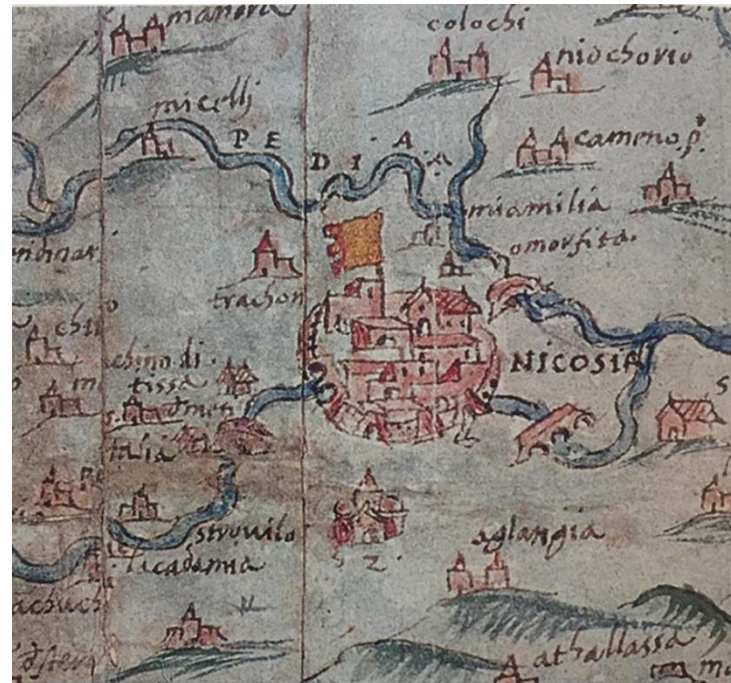 manora
colochi
niochorio
micelli
PEDIA
cameno.p.
miamilia
omorfita.
trachon
NICOSIA
chino di
tissa.
talia
strovilo
lacadamia
aglangia
athallassa